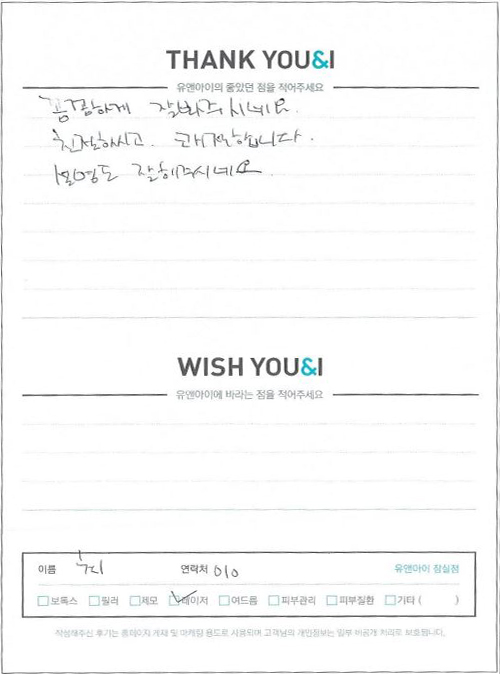 THANK YOU&I
유앤아이의 좋았던 점을 적어주세요
꼼꼼하게 잘봐주시네요.
친절하시고. 쾌적합니다.
설명도 잘해주시네요
WISH YOU&I
유앤아이에 바라는 점을 적어주세요
이름 연락처 010 유앤아이 잠실점
보톡스 필러 제모 레이저 여드름 피부관리 피부질환 기타 ( )
작성해주신 후기는 홈페이지 게재 및 마케팅 용도로 사용되며 고객님의 개인정보는 일부 비공개 처리로 보호됩니다.